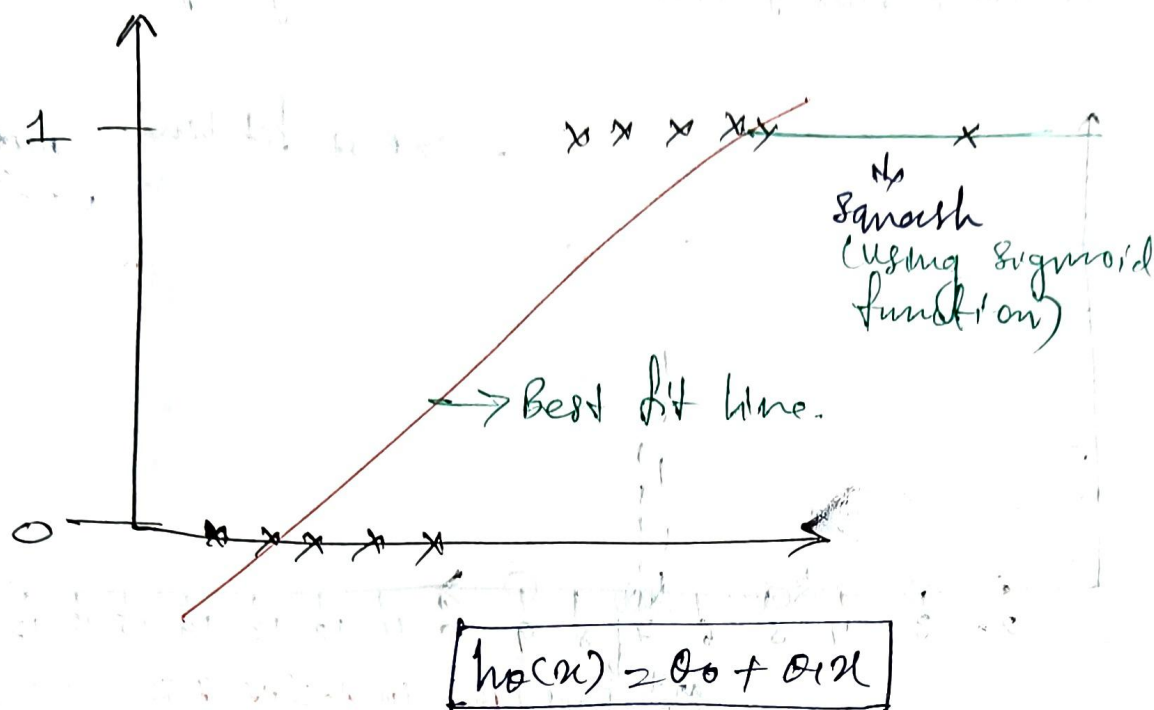 1
squash
(using sigmoid
function)
Best fit line.
0
hθ(x) = θ0 + θ1x